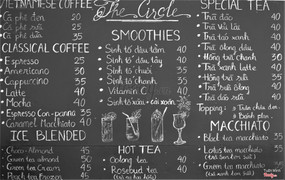 VIETNAMESE COFFEE
Cà phê đen 20
Cà phê sữa 25
CLASSICAL COFFEE
Espresso 25
Americano 30
Cappuccino 35
Latte 40
Mocha 40
Espresso Con-panna 35
Caramel Macchiato 40
ICE BLENDED
Choco-Almond 45
Green tea almond 50
Green tea cream 45
Peach tea frozen 45
The Circle
SMOOTHIES
Sinh tố dâu tằm 40
Sinh tố dâu tây 40
Sinh tố chuối 35
Sinh tố chanh 35
Vitamin C
Sinh tố xoài - cải xoăn
HOT TEA
Oolong tea 40
Rosebud tea 40
SPECIAL TEA
Trà đào 40
Trà vải 40
Trà táo xanh 40
Trà ôlong dâu 40
Hồng trà chanh 30
Trà xanh latte 40
Hồng trà sữa 35
Trà sữa ôlong 40
Trà dâu tằm 40
Topping:
MACCHIATO
Black tea macchiato 35
Lotus tea macchiato 35
Green tea macchiato 35